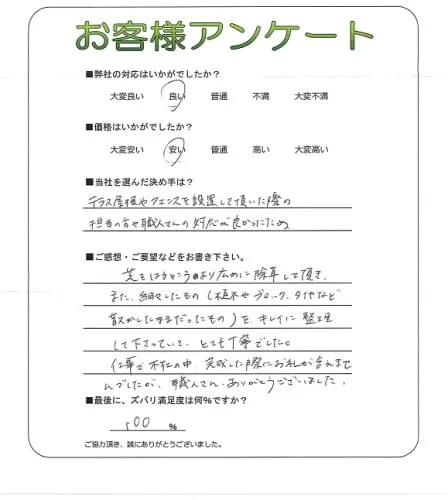 お客様アンケート
■弊社の対応はいかがでしたか？
大変良い 良い 普通 不満 大変不満
■価格はいかがでしたか？
大変安い 安い 普通 高い 大変高い
■当社を選んだ決め手は？
テラス屋根やフェンスを設置して頂いた際の
担当の方や職人さんの対応が良かったため
■ご感想・ご要望などをお書き下さい。
芝をはるところより広めに除草して頂き、
また、細々したもの（植木やブロック、タイヤなど
散らかしたままだったもの）を、キレイに整理
して下さっていて、とても丁寧でした。
仕事で不在の中、完成した際にお礼が言えませ
んでしたが、職人さん、ありがとうございました。
■最後に、ズバリ満足度は何%ですか？
100 %
ご協力頂き、誠にありがとうございました。